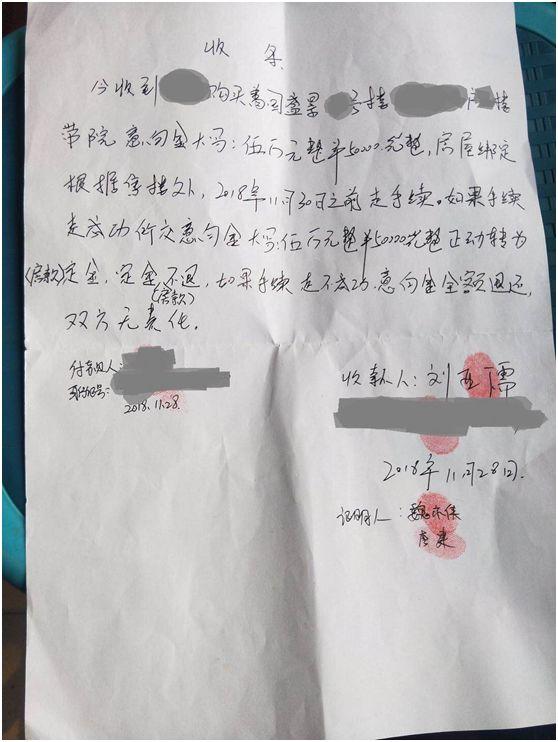 收条
今收到 购买 号楼
带院意向金大写:伍万元整¥50000.元整,房屋绑定
2018年11月30日之前走手续。如果手续
走成功所交意向金大写:伍万元整¥50000元整自动转为
(房款)定金,定金不退,如果手续走不成功.意向金全额退还,
(房款)
双方无责任.
付款人:
身份证号:
2018.11.28.
收款人:刘
2018年11月28日.
证明人:魏